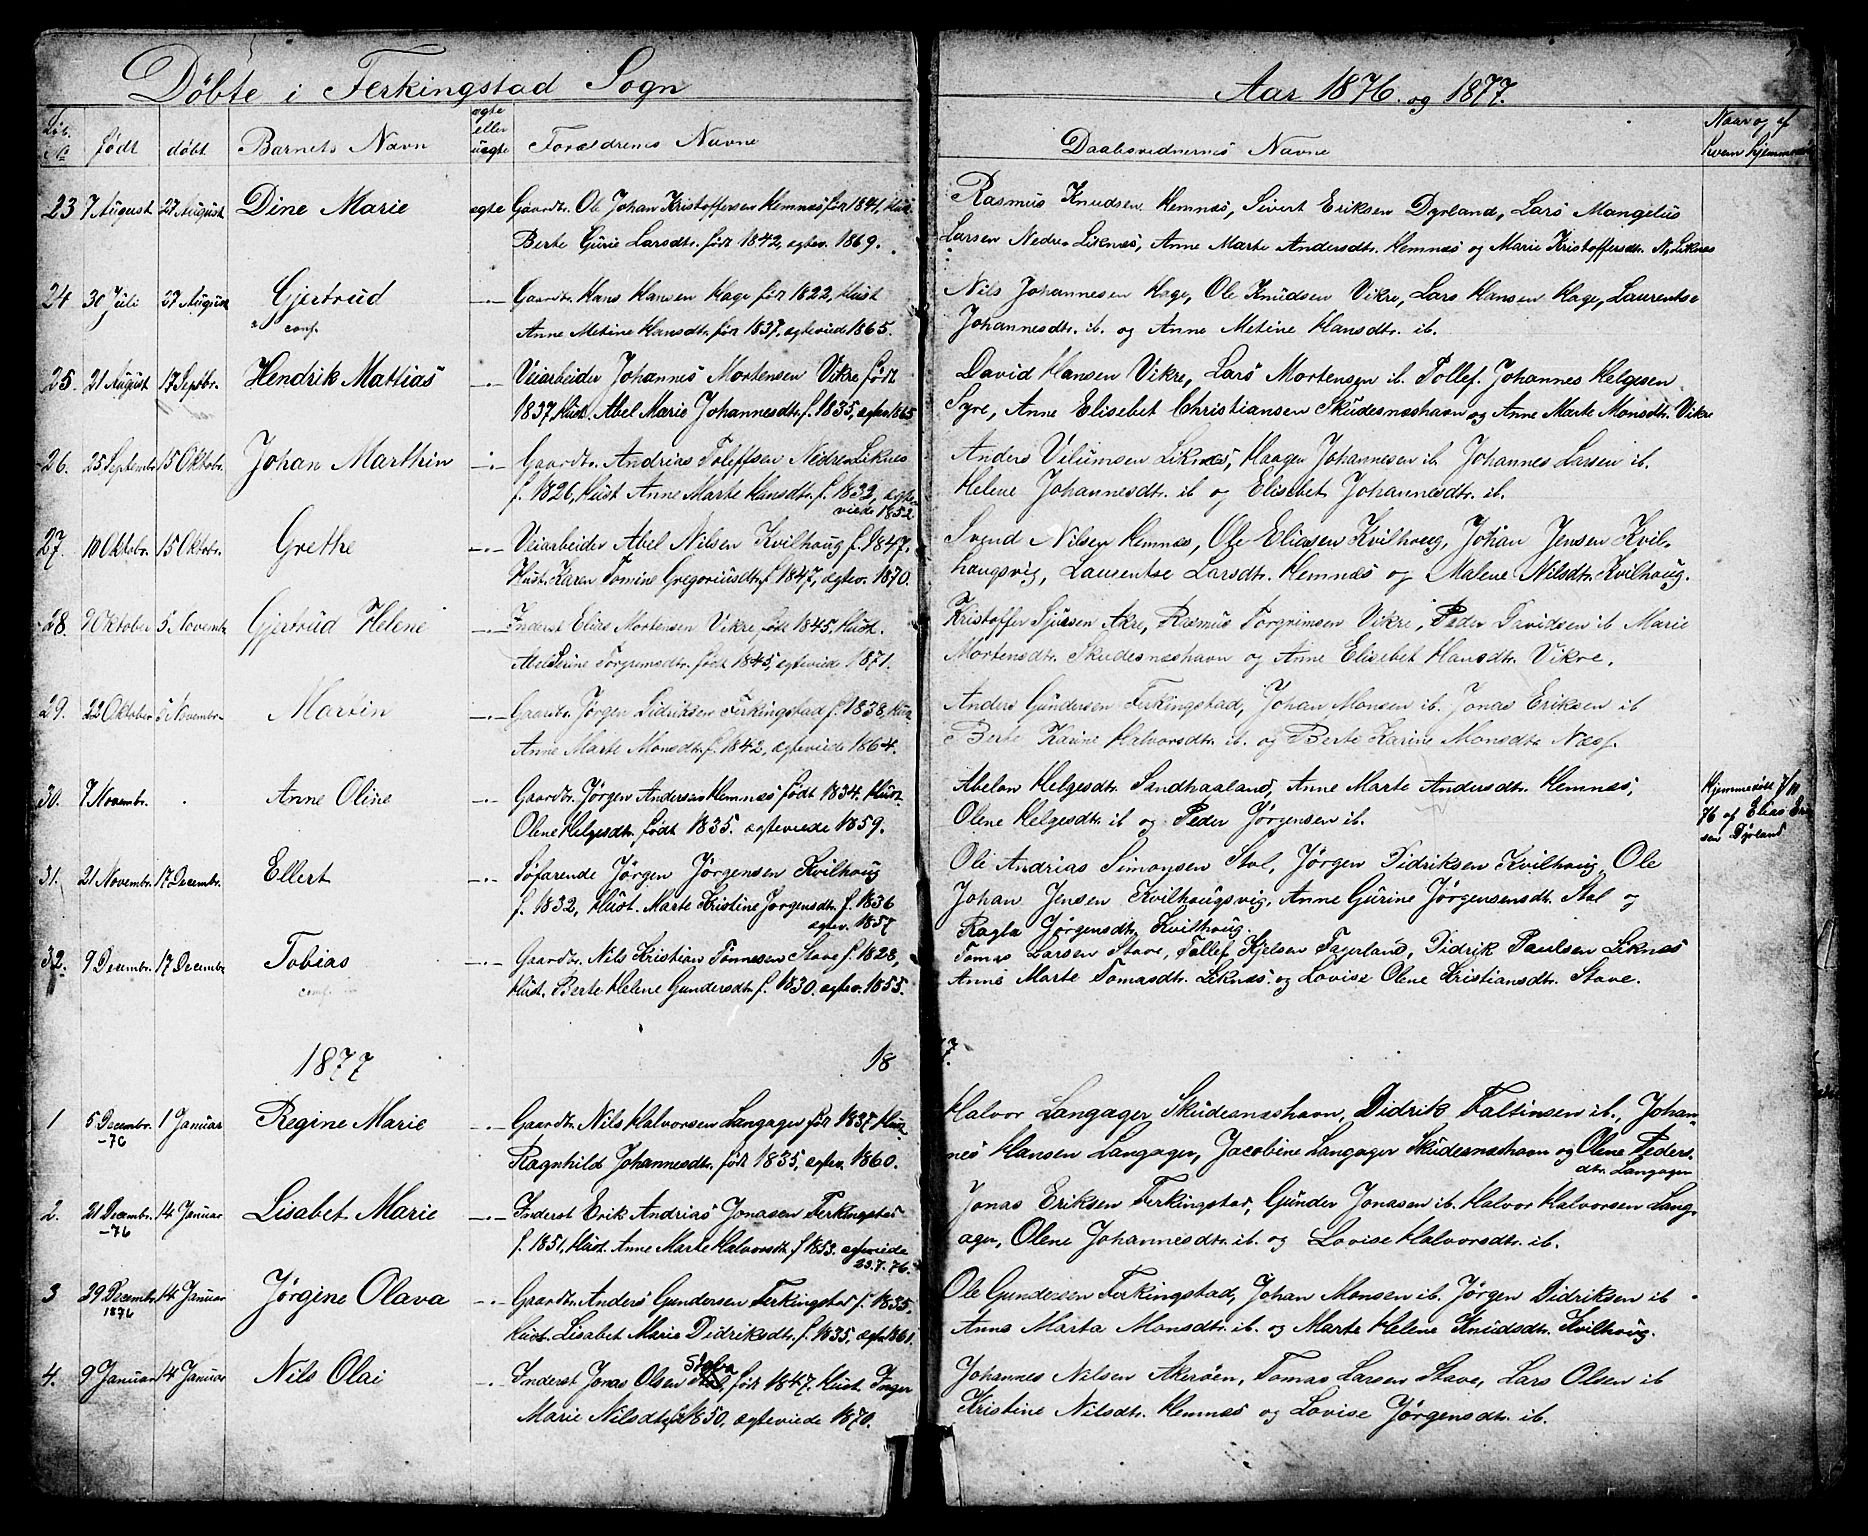 Døbte i Ferkingstad Sogn
Aar 1876 og 1877.
Lib. No født døbt Barnets Navn ægte eller uægte Forældrenes Navne Daabsvidnernes Navne Naar og af hvem hjemme
23 7 August 27 August Dine Marie ægte Gaardbr. Ole Johan Kristoffersen Hemnæs før 1841, Hust.
Berte Gurie Larsdtr. født 1842, egtev. 1869.
Rasmus Knudsen Hemnæs, Sivert Eriksen Dyrland, Lars Mangelus
Larsen Nedre Liknæs, Anne Marte Andersdtr. Hemnæs og Marie Kristoffersdtr. N. Liknæs
24 30 Juli 27 August Gjertrud —.— Gaardbr. Hans Hansen Hage før 1822, Hust.
conf. Anne Metine Hansdtr. før 1837, egteviede 1865.
Nils Johannesen Hage, Ole Knudsen Vikre, Lars Hansen Hage, Laurentse
Johannesdtr. ib. og Anne Metine Hansdtr. ib.
25. 21 August 17 Septbr. Hendrik Matias —.— Veiarbeider Johannes Mortensen Vikre født
1837, Hust. Abel Marie Johannesdtr. f. 1835, egtev. 1865
David Hansen Vikre, Lars Mortensen ib. Tollef Johannes Helgesen
Syre, Anne Elisebet Christiansen Skudesnæshavn og Anne Marte Monsdtr. Vikre
26. 25 Septembr. 15 Oktobr. Johan Marthin —.— Gaardbr. Andrias Toleffsen Nedre Liknæs
f. 1826, Hust. Anne Marte Hansdtr. f. 1832, egte-
viede 1852.
Anders Vilumsen Liknæs, Haagen Johannesen ib. Johannes Larsen ib.
Helene Johannesdtr. ib og Elisebet Johannesdtr. ib.
27. 10 Oktobr. 15 Oktobr. Grethe —.— Veiarbeider Abel Nilsen Kvilhaug f. 1847,
Hust. Karen Tomine Gregoriusdtr. f 1847, egtev. 1870.
Svend Nilsen Hemnæs, Ole Eliasen Kvilhoug, Johan Jensen Kvil-
hougsvig, Laurentse Larsdtr. Hemnæs og Malene Nilsdtr. Kvilhoug.
28. 9 Oktober 5 Novembr. Gjertrud Helene —.— Inderst Elias Mortensen Vikre, født 1845, Hust.
Abel Serine Torgrimsdtr. født 1845, egteviede 1871.
Kristoffer Sjursen Akre, Rasmus Torgrimsen Vikre, Peder Davidsen ib Marie
Mortensdtr. Skudesnæshavn og Anne Elisebet Hansdtr. Vikre.
29. 22 Oktober 5 Novembr. Martin —.— Gaardbr. Jørgen Didriksen Ferkingstad f. 1838, Hust.
Anne Marte Monsdtr. f. 1842, egteviede 1864.
Anders Gundersen Ferkingstad, Johan Monsen ib. Jonas Eriksen ib
Berte Karine Halvorsdtr. ib. og Berte Karine Monsdtr. Næs.
30. 7 Novembr. Anne Oline —.— Gaardbr. Jørgen Andersen Hemnæs født 1834. Hust.
Olene Helgesdtr. født 1835. egteviede 1859.
Abelon Helgesdtr. Sandhaaland, Anne Marte Andersdtr. Hemnæs,
Olene Helgesdtr. ib og Peder Jørgensen ib.
Hjemmedøbt 7/11
76 af Elias Erik-
sen Dyrland
31. 21 Novembr. 17 Decembr. Ellert —.— Søfarende Jørgen Jørgensen Kvilhoug
f. 1832, Hust. Marte Kristine Jørgensdtr. f. 1836
egtev. 1857
Ole Andrias Simonsen Stol, Jørgen Didriksen Kvilhoug, Ole
Johan Jensen Kvilhougsvig, Anne Gurine Jørgensensdtr. Stol og
Ragla Jørgensdtr. Kvilhoug.
32. 9 Decembr. 17 Decembr Tobias —.— Gaardbr. Nils Kristian Tønnesen Stave f. 1828,
conf. Hust. Berte Helene Gundersdtr. f. 1830. egtev. 1855.
Tomas Larsen Stave, Tollef Kjelsen Fagerland, Didrik Paulsen Liknæs
Anne Marte Tomasdtr. Liknæs. og Lovise Olene Kristiansdtr. Stave.
1877 18 77.
1 5 Decembr. 1 Januar Regine Marie —.— Gaardbr. Nils Halvorsen Langager før 1837 Hust.
—76 Ragnhild Johannesdtr. født 1835, egtev. 1860.
Halvor Langager Skudesnæshavn, Didrik Faltinsen ib., Johan-
nes Hansen Langager, Jacobine Langager Skudesnæshavn og Olene Peders-
dtr. Langager
2. 21 Decembr. 14 Januar Lisabet Marie —.— Inderst Erik Andrias Jonasen Ferkingstad
—76 f. 1851, Hust. Anne Marte Halvorsdtr f 1853. egteviede
23.7.76.
Jonas Eriksen Ferkingstad, Gunder Jonasen ib. Halvor Halvorsen Lang-
ager, Olene Johannesdtr. ib. og Lovise Halvorsdtr. ib.
3 29 Decembr 14 Januar Jørgine Olava —.— Gaardbr. Anders Gundersen Ferkingstad f. 1835.
1876 Hust. Lisabet Marie Didriksdtr. f. 1835, egtev. 1861.
Ole Gundersen Ferkingstad, Johan Monsen ib. Jørgen Didriksen ib
Anna Marta Monsdtr. ib. og Marte Helene Knudsdtr. Kvilhoug.
4. 9 Januar 14 Januar Nils Olai —.— Inderst Jonas Olsen Stava, født 1847. Hust. Inger
Marie Nilsdtr. f 1850, egteviede 1870.
Johannes Nilsen Akerøen, Tomas Larsen Stave, Lars Olsen ib
Kristine Nilsdtr. Hemnæs og Lovise Jørgensdtr. ib.